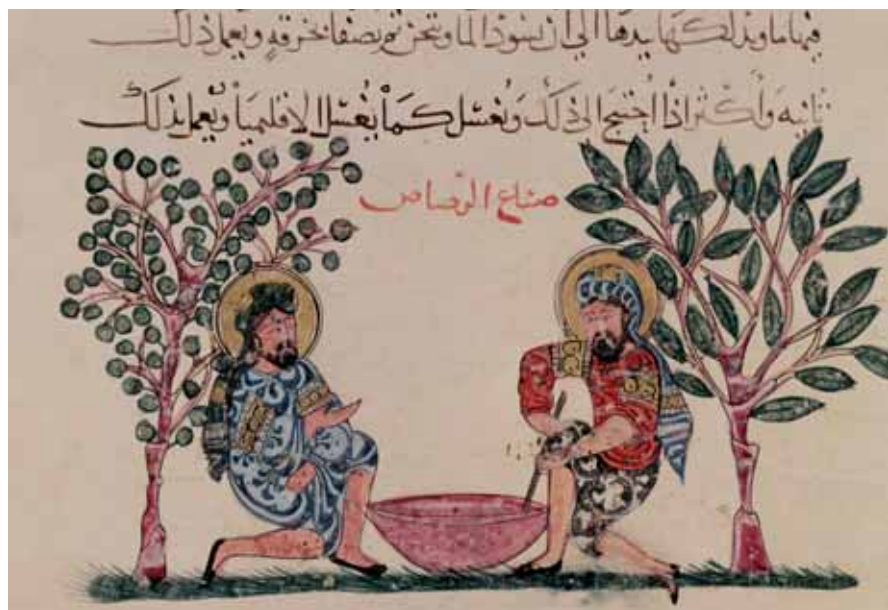 فيها ما ويدلكها بيدها الى ان يسود الما ويثخن ثم يصفا بخرقه ويعمل ذلك
ثانيه وأكثر اذا احتيج الى ذلك ويغسل كما يغسل الاقليميا ويعمل بذلك
صناع الرصاص